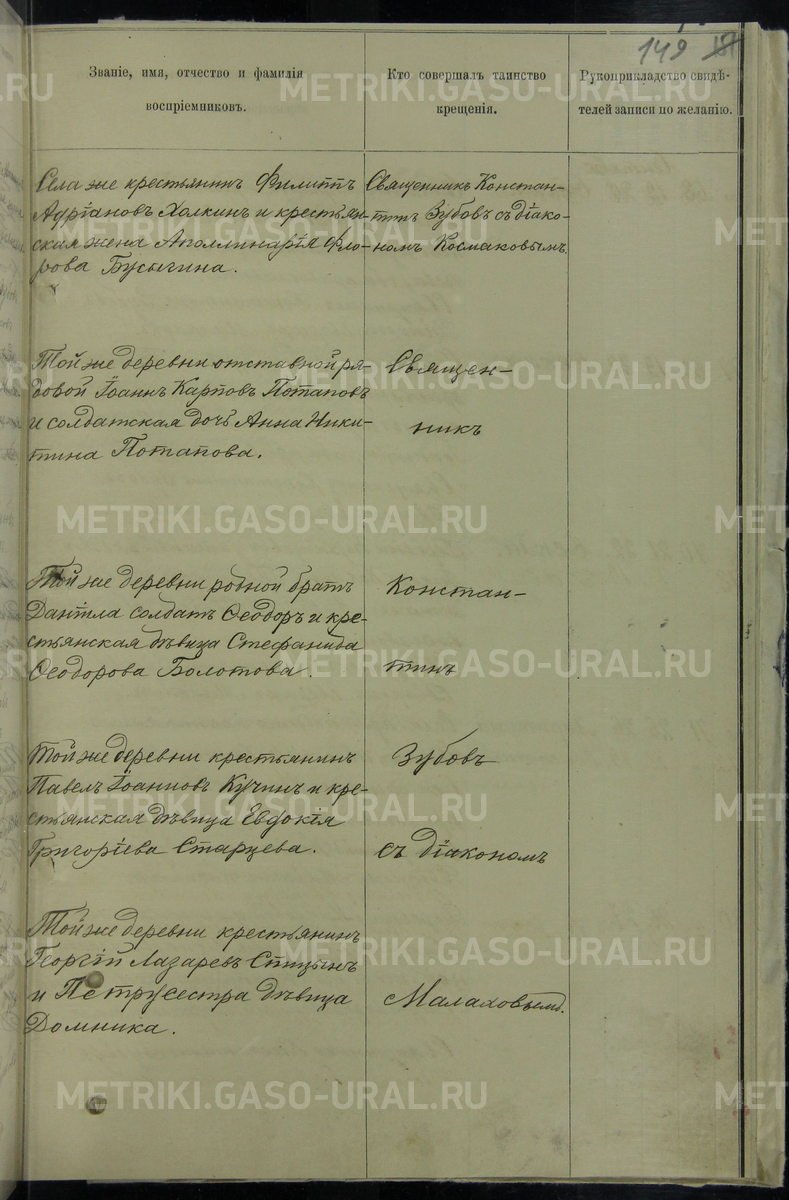 149
Званіе, имя, отчество и фамилія
воспріемниковъ.
Кто совершалъ таинство
крещенія.
Рукоприкладство свидѣ-
телей записи по желанію.
Села же крестьянинъ Филиппъ
Адріановъ Холкинъ и крестьян-
ская жена Аполлинарія Фло-
рова Бусыгина.
Священникъ Констан-
тинъ Зубовъ съ діако-
номъ Космаковымъ.
Той же деревни отставной ря-
довой Іоаннъ Карповъ Потаповъ
и солдатская дочь Анна Ники-
тина Потапова.
Священ-
никъ
Той же деревни родной братъ
Даніила солдатъ Ѳеодоръ и кре-
стьянская дѣвица Стефанида
Ѳеодорова Болотова.
Констан-
тинъ
Той же деревни крестьянинъ
Павелъ Іоанновъ Кучинъ и кре-
стьянская дѣвица Евдокія
Григоріева Старцева.
Зубовъ
съ діакономъ
Той же деревни крестьянинъ
Георгій Лазаревъ Спицынъ
и Петру сестра дѣвица
Домника.
Малаховымъ.
METRIKI.GASO-URAL.RU